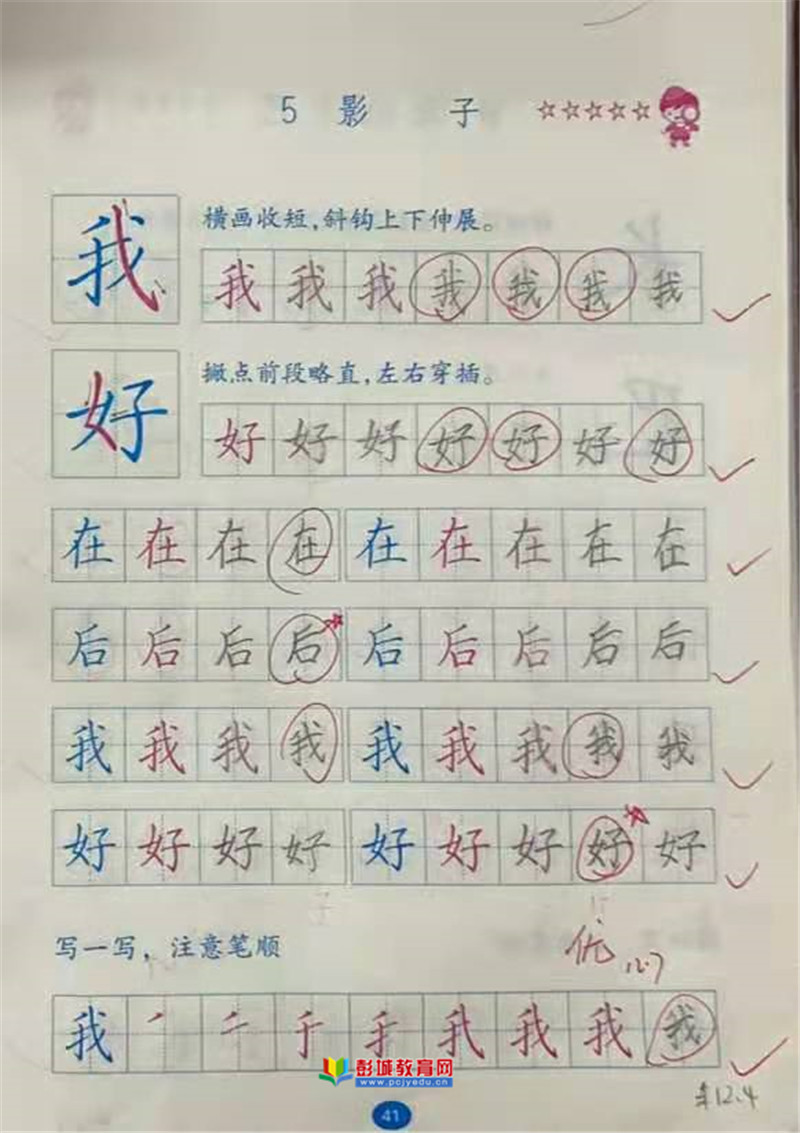 5 影 子 ☆☆☆☆☆
我 横画收短，斜钩上下伸展。
我 我 我 我 我 我 我
好 撇点前段略直，左右穿插。
好 好 好 好 好 好 好
在 在 在 在 在 在 在 在 在
后 后 后 后 后 后 后 后 后
我 我 我 我 我 我 我 我 我
好 好 好 好 好 好 好 好 好
写一写，注意笔顺
优 12.7
我 我 我 我
彭城教育网
www.pcjyedu.cn
12.4
41